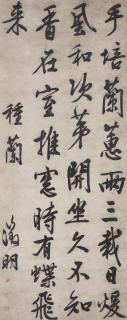 手培蘭蕙兩三載日煖
風和次第開坐久不知
香在室推窓時有蝶飛
來　種蘭
徵明